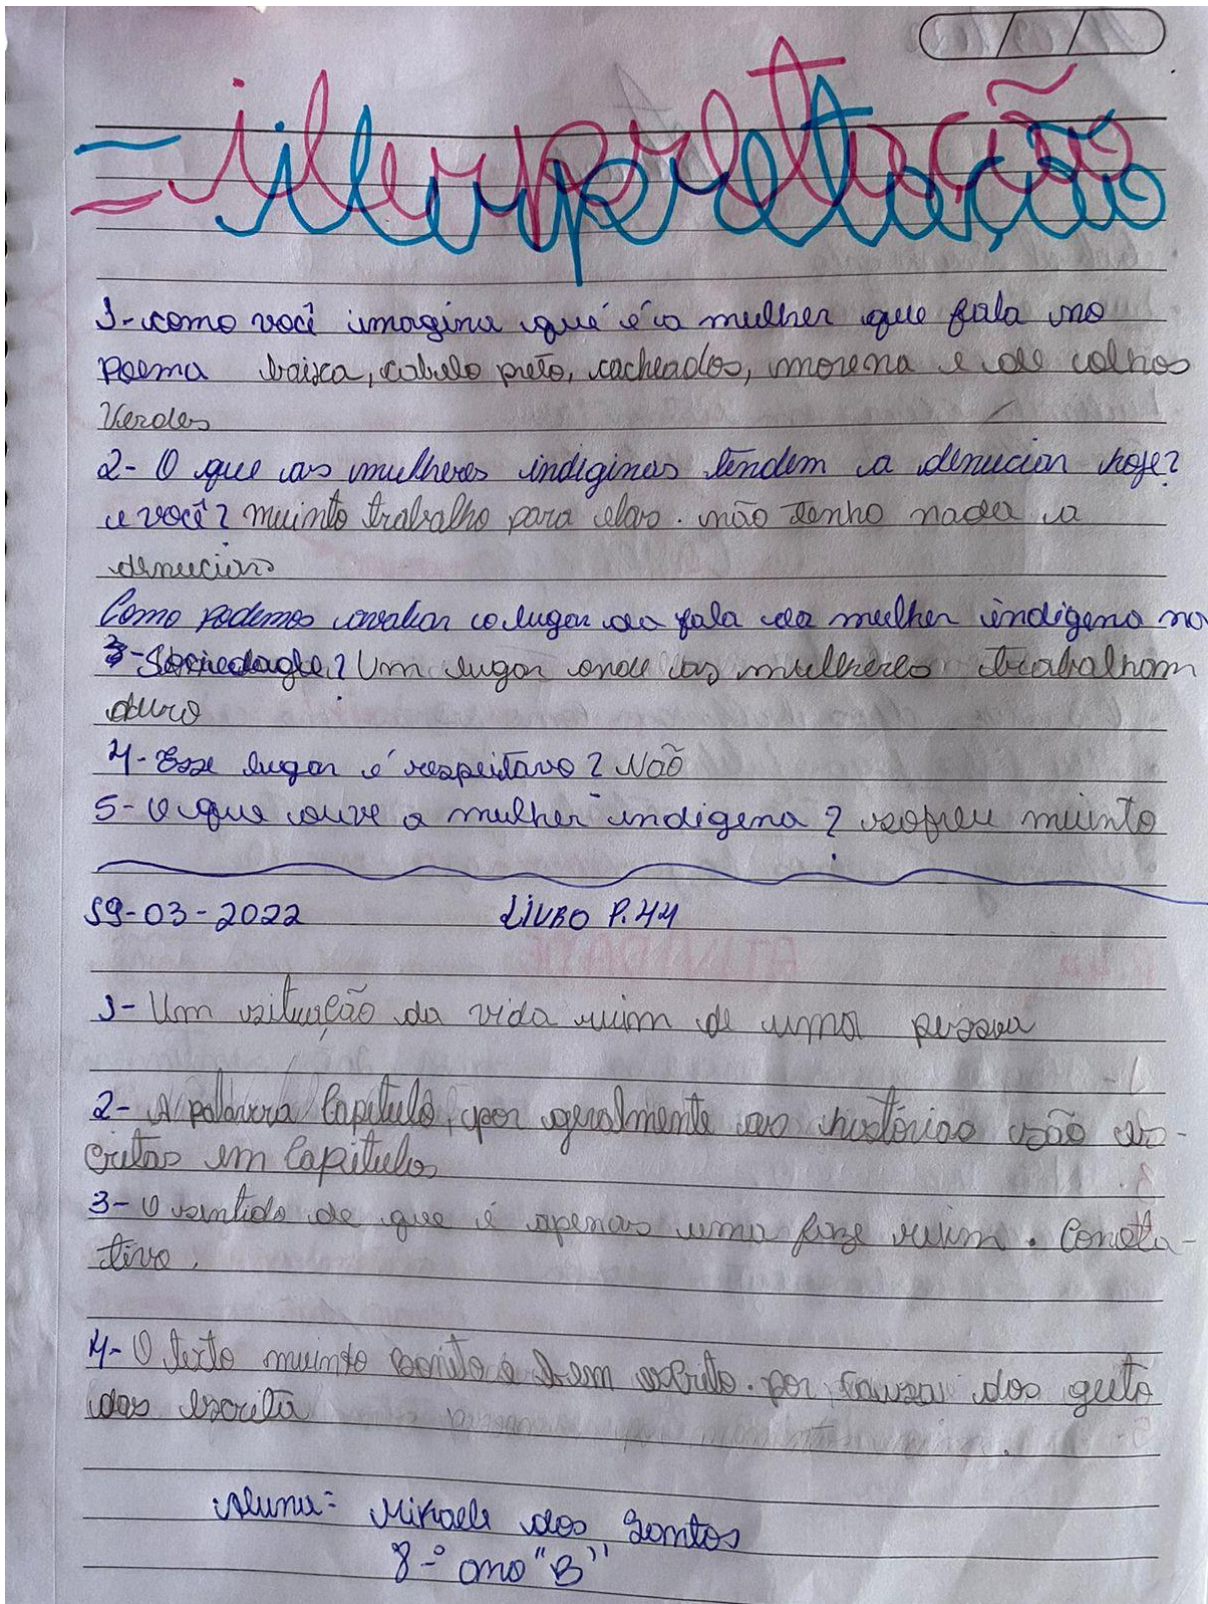 = interpretação
1- como você imagina que é a mulher que fala no
poema baixa, cabelo preto, cacheados, morena e de olhos
verdes
2- O que as mulheres indiginas tendem a denuciar hoje?
e você? muinto trabalho para elas. não tenho nada a
denuciar
Como podemos avaliar o lugar da fala da mulher indigena na
3- Sociedade? Um lugar onde as mulheres trabalham
duro
4- Esse lugar é respeitavo? Não
5- O que ouve a mulher indigena? sofreu muinto
19-03-2022 LIVRO P.44
1- Um situação da vida ruim de uma pessoa
2- A palavra Capitulo, por geralmente as histórias são es-
critas em Capitulos
3- O sentido de que é apenas uma faze ruim. Conota-
tivo.
4- O texto muinto bonito e bem escrito. por causa dos geito
das escrita
Aluna: Mikaele dos Santos
8-° ano "B"